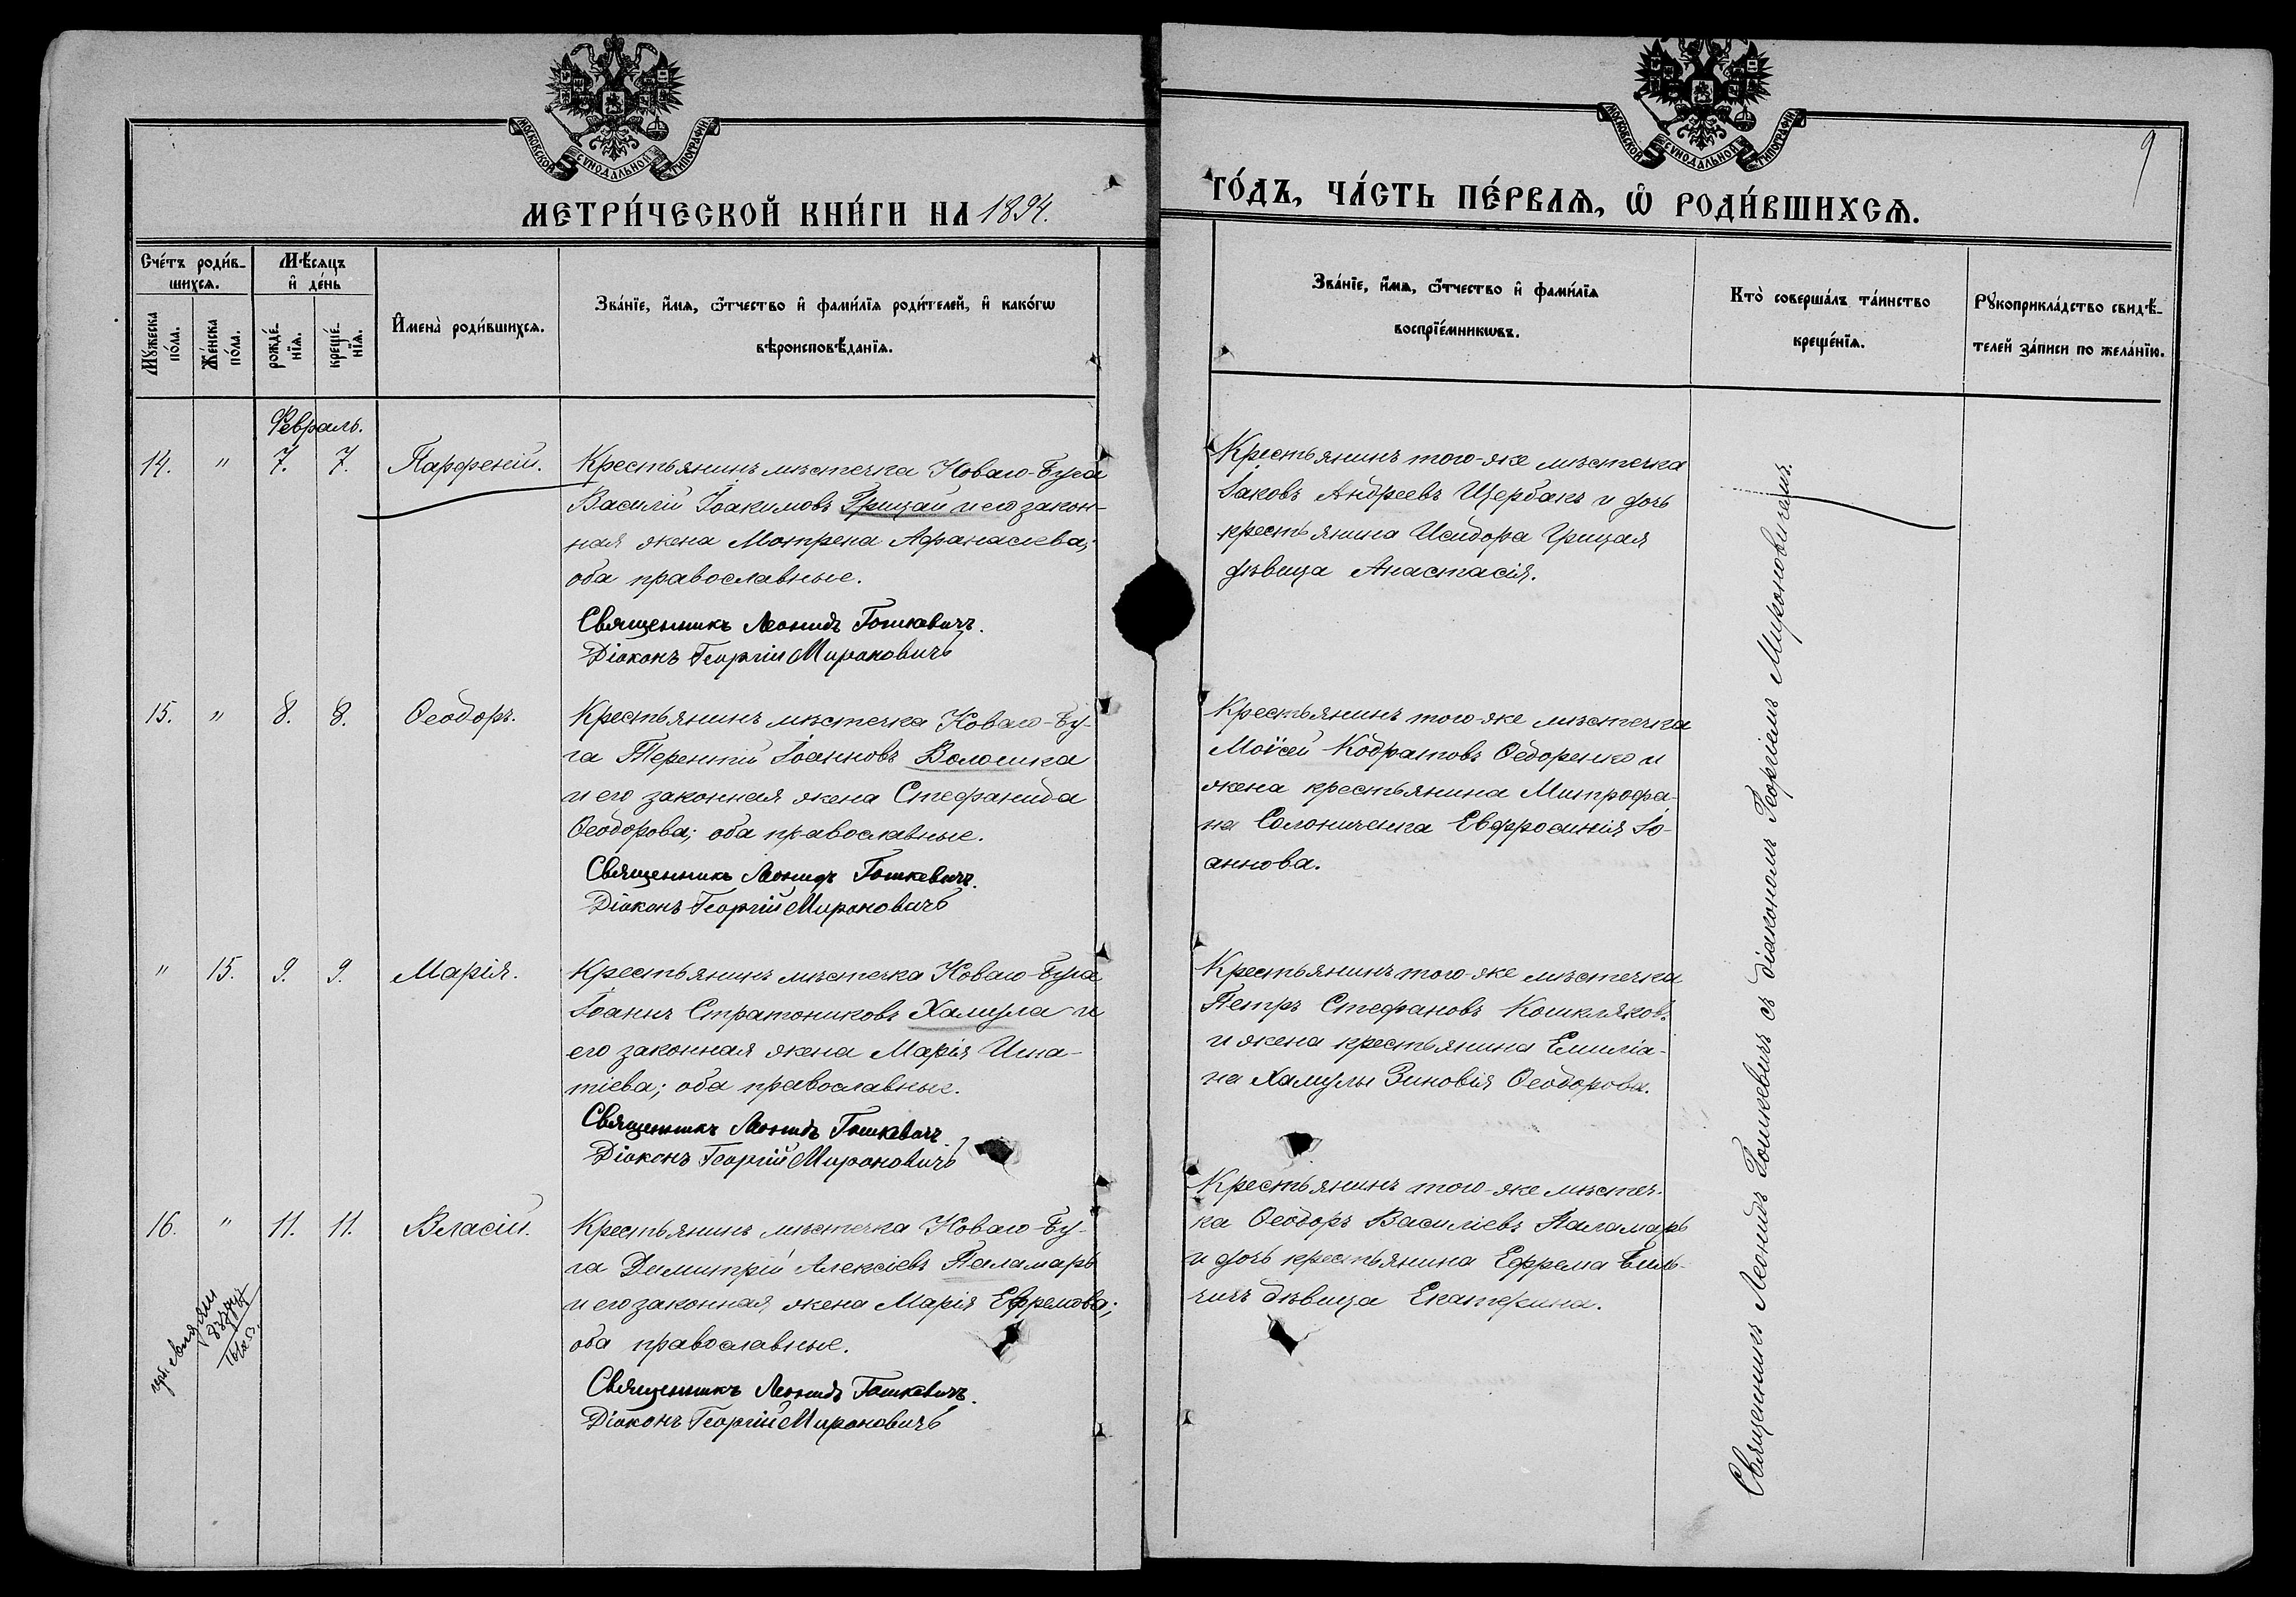 МОСКОВСКОЙ СѴНОДАЛЬНОЙ ТИПОГРАФІИ
МОСКОВСКОЙ СѴНОДАЛЬНОЙ ТИПОГРАФІИ
9
МЕТРИ́ЧЕСКОЙ КНИ́ГИ НА 1894.
ГО́ДЪ, ЧА́СТЬ ПЕ́РВАѦ, Ѽ РОДИ́ВШИХСѦ.
Сче́тъ роди́в-
шихсѧ.
Мꙋжеска по́ла.
Же́нска по́ла.
Мѣ́сяцъ
и҆ де́нь
рожде́-
нїѧ.
креще́-
нїѧ.
И҆мена̀ роди́вшихсѧ.
Зва́нїе, и҆́мѧ, ѻ҆́тчество и҆ фами́лїѧ роди́телей, и҆ како́гѡ
вѣроисповѣ́данїѧ.
Зва́нїе, и҆́мѧ, ѻ҆́тчество и҆ фами́лїѧ
воспрїе́мникѡвъ.
Кто̀ соверша́лъ та́инство
креще́нїѧ.
Рꙋкоприкла́дство свидѣ́-
телей за́писи по жела́нїю.
Февраль.
14. " 7. 7. Парфеній.
Крестьянинъ мѣстечка Новаго-Буга
Василій Іоакимовъ Грицай и его закон-
ная жена Мотрена Афанасіева;
оба православные.
Священникъ Леонидъ Гошкевичъ.
Діаконъ Георгій Мироновичъ
Крестьянинъ того-же мѣстечка
Іаковъ Андреевъ Щербакъ и дочь
крестьянина Исидора Грицая
дѣвица Анастасія.
15. " 8. 8. Ѳеодоръ.
Крестьянинъ мѣстечка Новаго-Бу-
га Терентій Іоанновъ Волошка
и его законная жена Стефанида
Ѳеодорова; оба православные.
Священникъ Леонидъ Гошкевичъ.
Діаконъ Георгій Мироновичъ
Крестьянинъ того-же мѣстечка
Моѵсей Кодратовъ Ѳедоренко и
жена крестьянина Митрофа-
на Солониченка Евфросинія Іо-
аннова.
" 15. 9. 9. Марія.
Крестьянинъ мѣстечка Новаго-Буга
Іоаннъ Стратониковъ Хамула и
его законная жена Марія Игна-
тіева; оба православные.
Священникъ Леонидъ Гошкевичъ.
Діаконъ Георгій Мироновичъ
Крестьянинъ того-же мѣстечка
Петръ Стефановъ Кошкляковъ
и жена крестьянина Емиліа-
на Хамулы Зиновія Ѳеодорова.
16. " 11. 11. Власій.
Крестьянинъ мѣстечка Новаго-Бу-
га Димитрій Алексіевъ Паламарь
и его законная жена Марія Ефремова;
оба православные.
Священникъ Леонидъ Гошкевичъ.
Діаконъ Георгій Мироновичъ
Крестьянинъ того-же мѣстеч-
ка Ѳеодоръ Василіевъ Паламарь
и дочь крестьянина Ефрема Биль-
чичъ дѣвица Екатерина.
Священникъ Леонидъ Гошкевичъ съ діакономъ Георгіемъ Мироновичемъ.